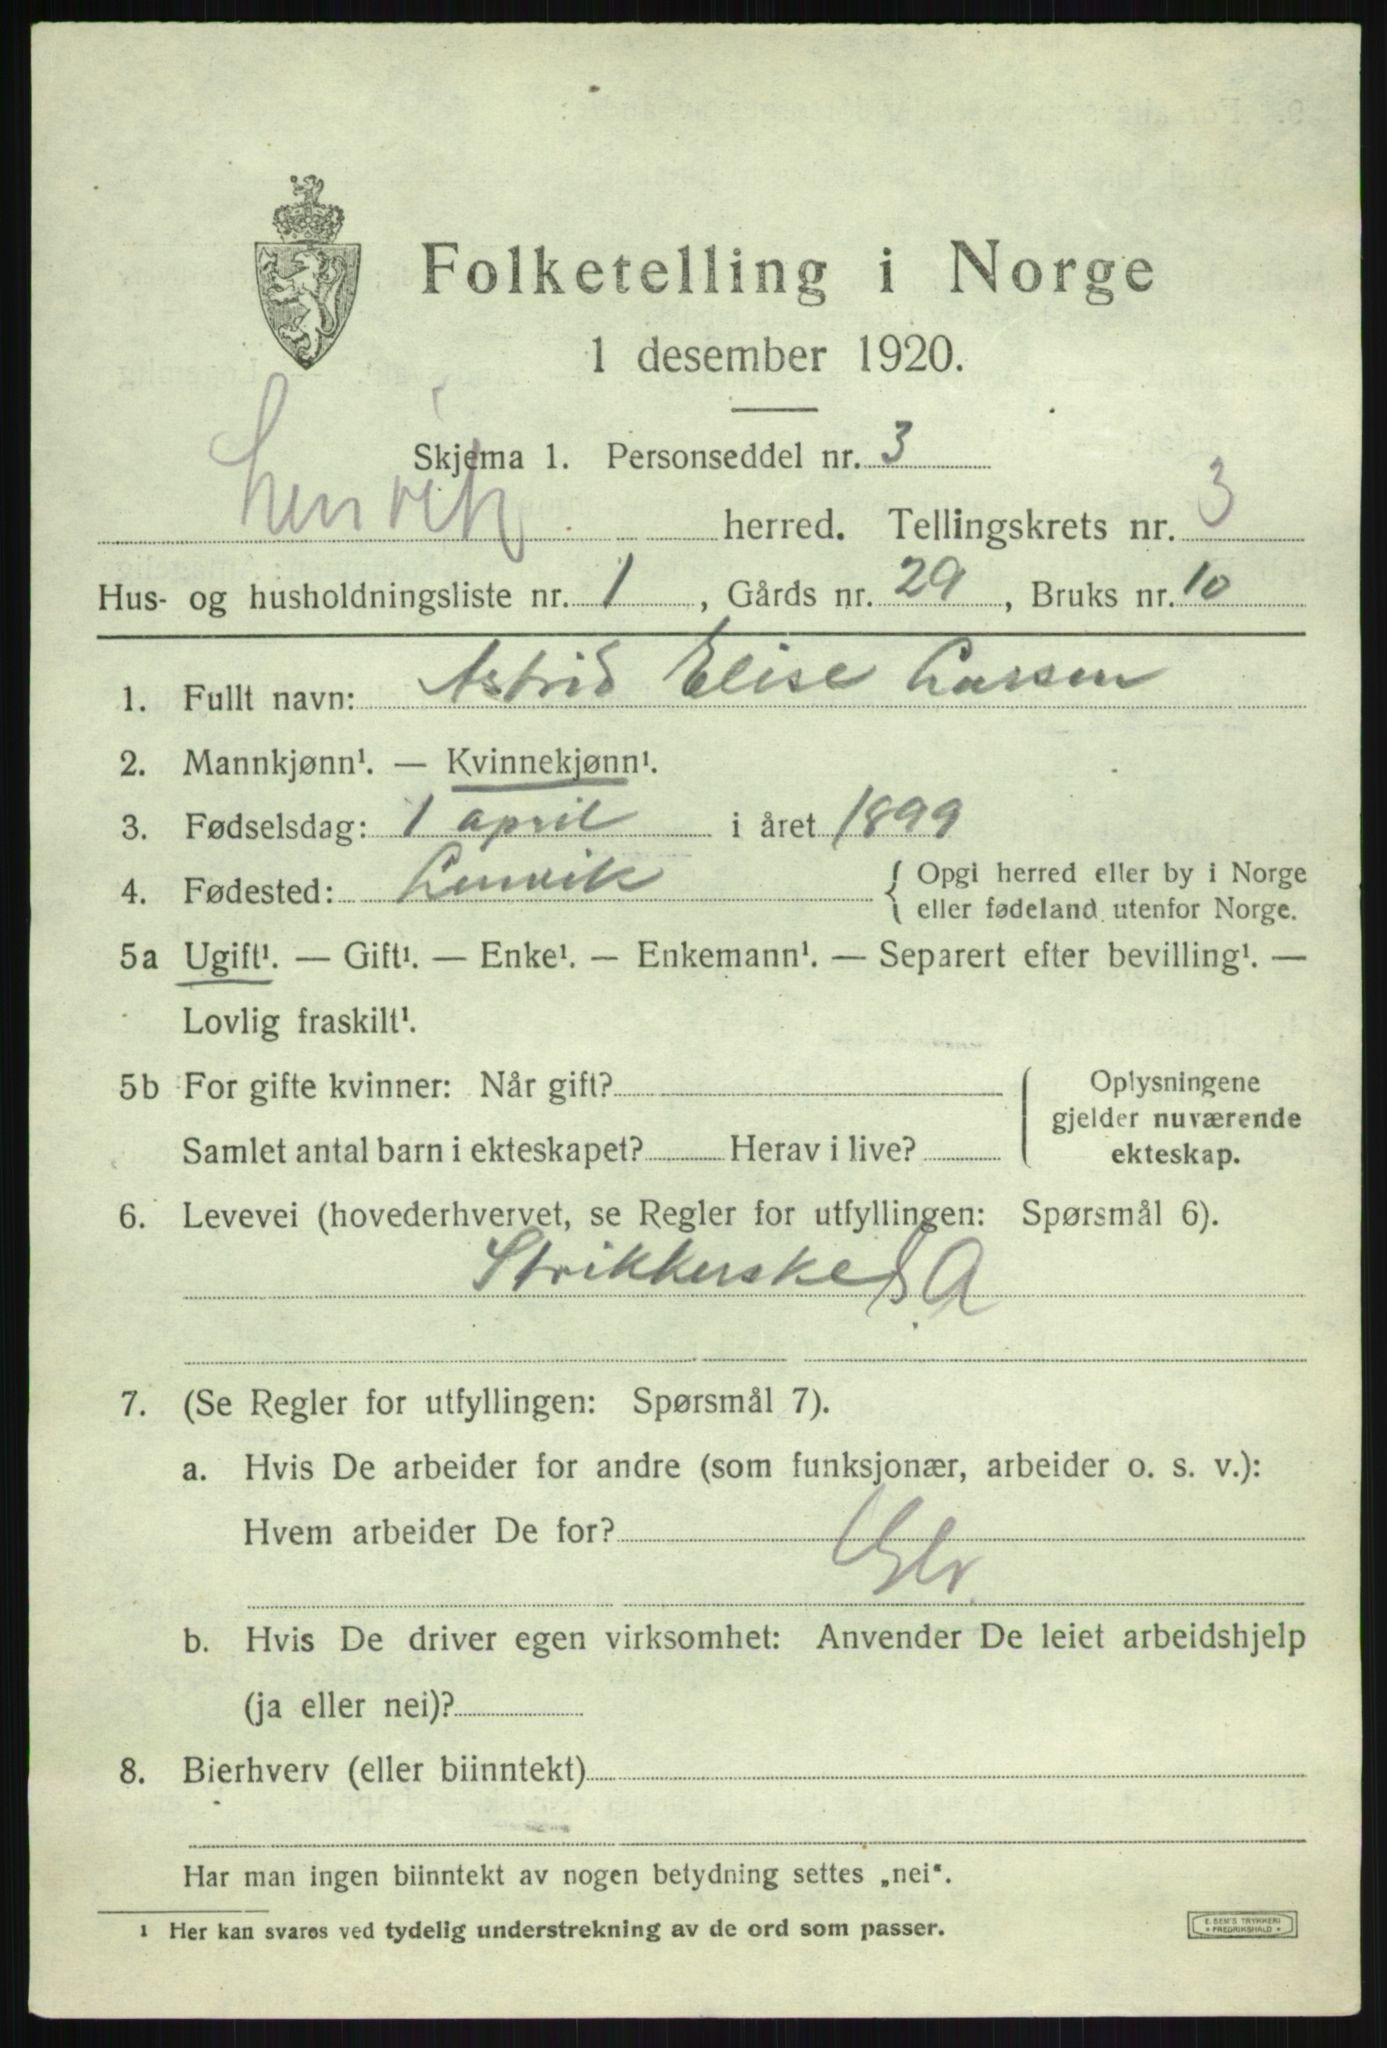 Folketelling i Norge
1 desember 1920.
Skjema 1. Personseddel nr. 3
Lenvik herred. Tellingskrets nr. 3
Hus- og husholdningsliste nr. 1, Gårds nr. 29, Bruks nr. 10
1. Fullt navn: Astrid Elise Larsen
2. Mannkjønn¹. — Kvinnekjønn¹.
3. Fødselsdag: 1 april i året 1899
4. Fødested: Lenvik { Opgi herred eller by i Norge
eller fødeland utenfor Norge.
5a Ugift¹. — Gift¹. — Enke¹. — Enkemann¹. — Separert efter bevilling¹. —
Lovlig fraskilt¹.
5b For gifte kvinner: Når gift?
Samlet antal barn i ekteskapet? Herav i live?
Oplysningene
gjelder nuværende
ekteskap.
6. Levevei (hovederhvervet, se Regler for utfyllingen: Spørsmål 6).
Strikkerske S A
7. (Se Regler for utfyllingen: Spørsmål 7).
a. Hvis De arbeider for andre (som funksjonær, arbeider o. s. v.):
Hvem arbeider De for?
b. Hvis De driver egen virksomhet: Anvender De leiet arbeidshjelp
(ja eller nei)?
8. Bierhverv (eller biinntekt)
Har man ingen biinntekt av nogen betydning settes „nei“.
¹ Her kan svares ved tydelig understrekning av de ord som passer.
E. SEM'S TRYKKERI
FREDRIKSHALD